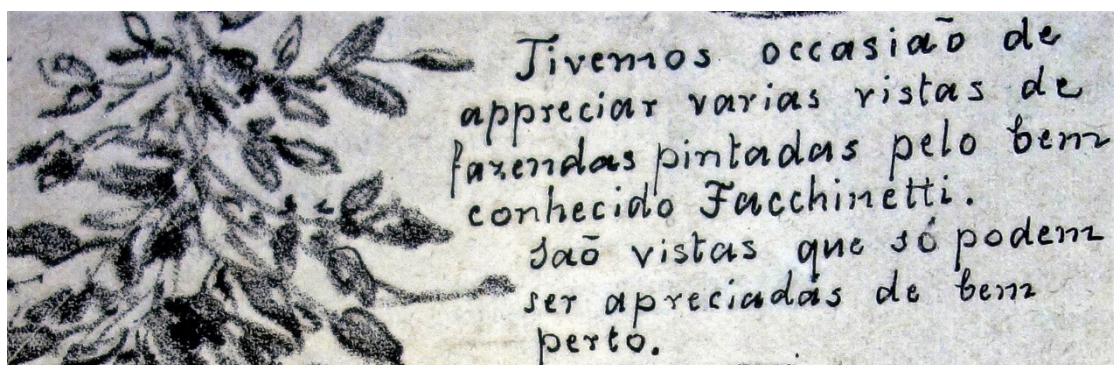 Tivemos occasiaõ de
appreciar varias vistas de
fazendas pintadas pelo bem
conhecido Facchinetti.
Saõ vistas que só podem
ser apreciadas de bem
perto.